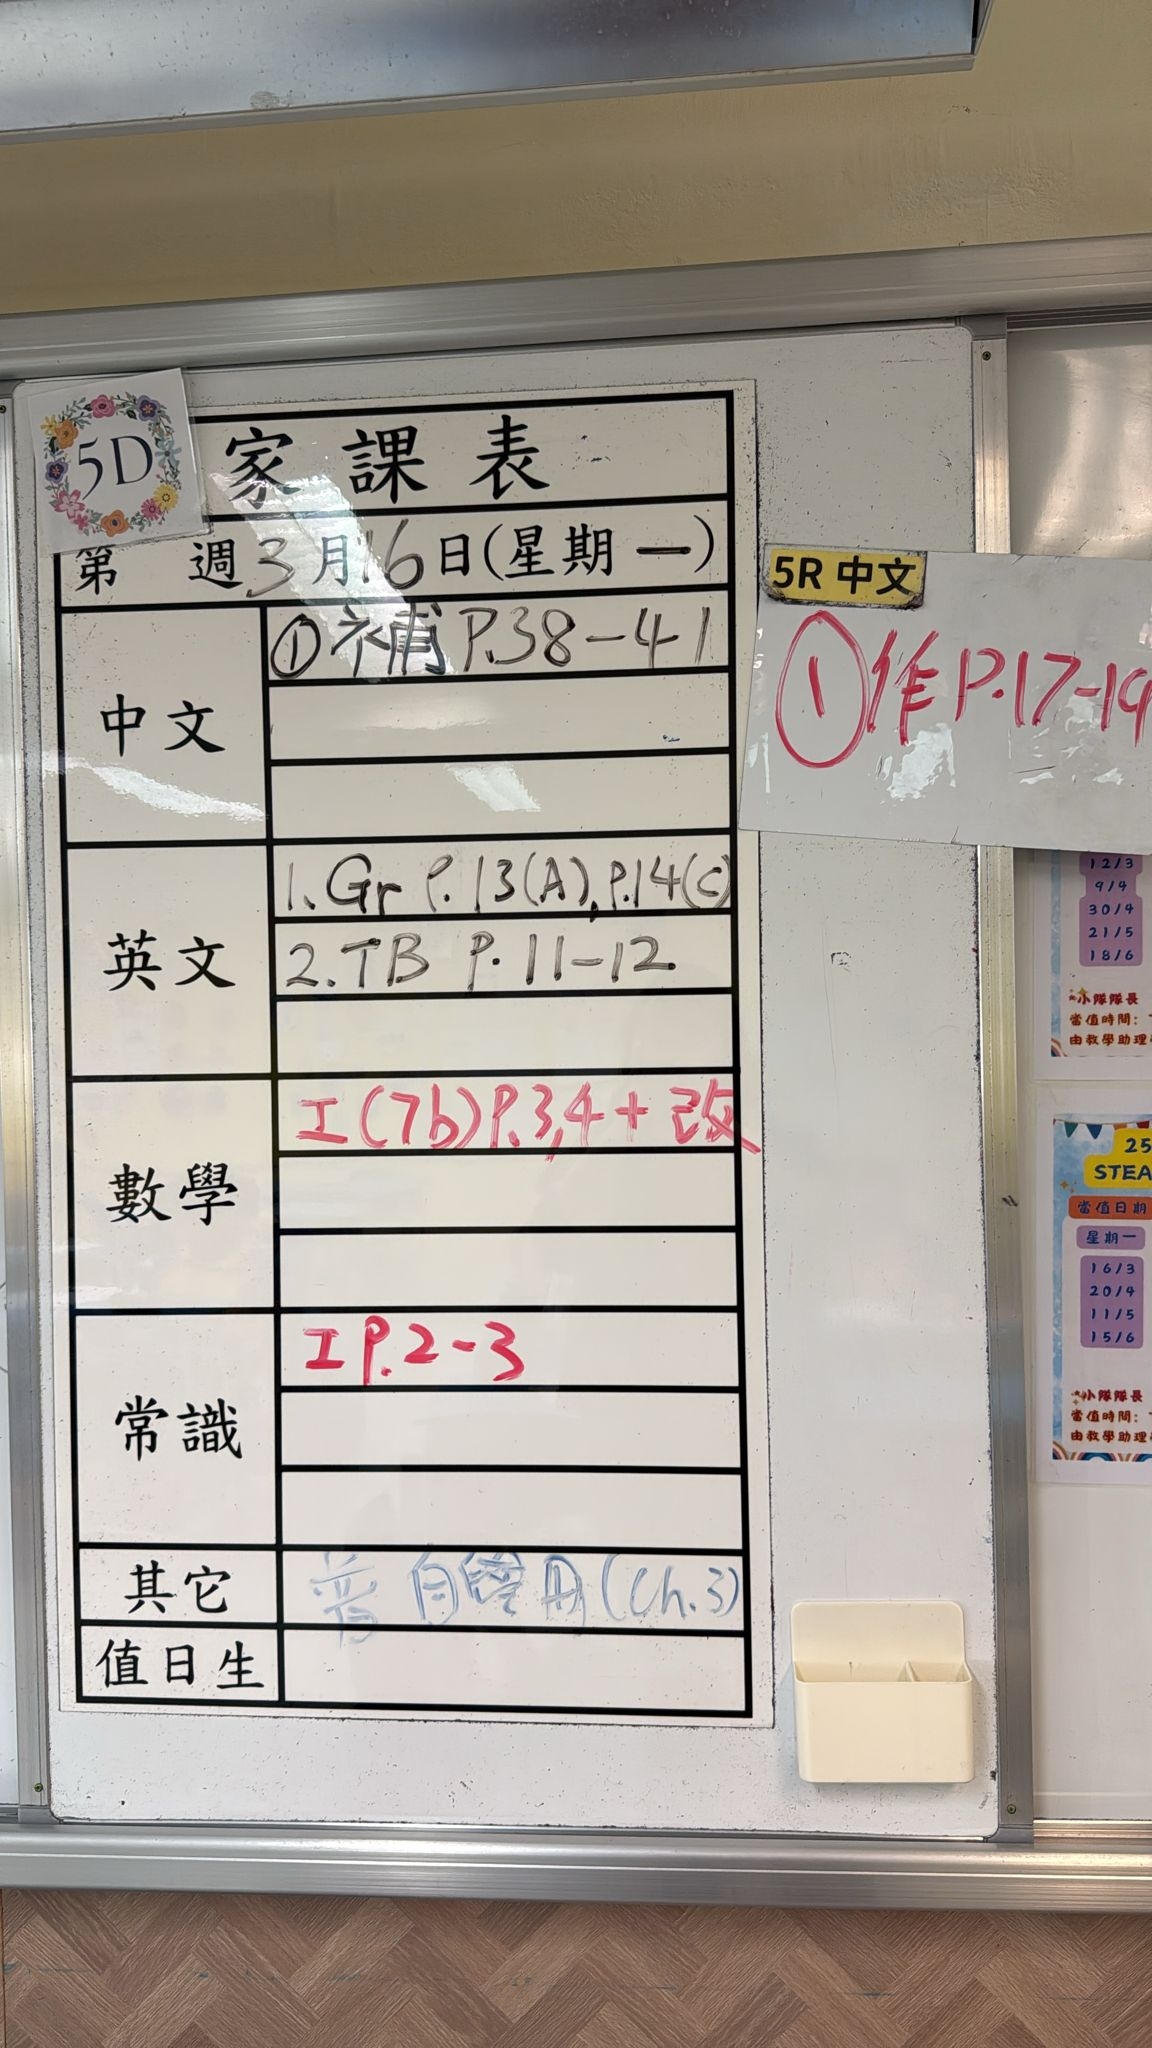 5D
家課表
第 週 3月16日(星期一)
中文
①補 P.38-41
英文
1. Gr P.13(A), P.14(C)
2. TB P. 11-12
數學
工(7b)P.3,4 + 改
常識
工 P.2-3
其它
普 自學冊(Ch.3)
值日生
5R 中文
①作 P.17-19
12/3
9/4
30/4
21/5
18/6
小隊隊長
當值時間:
由教學助理
25
STEA
當值日期
星期一
16/3
20/4
11/5
15/6
小隊隊長
當值時間:
由教學助理